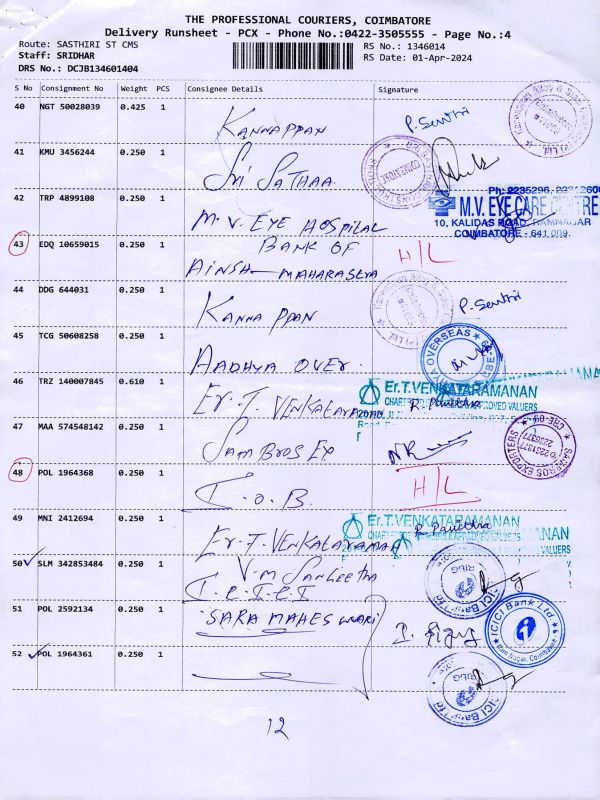 THE PROFESSIONAL COURIERS, COIMBATORE
Delivery Runsheet - PCX - Phone No.:0422-3505555 - Page No.:4
Route: SASTHIRI ST CMS
Staff: SRIDHAR
DRS No.: DCJB134601404
RS No.: 1346014
RS Date: 01-Apr-2024
S No Consignment No Weight PCS Consignee Details Signature
40 NGT 50028039 0.425 1 KANNAPPAN P. Senthi
41 KMU 3456244 0.250 1 Sri SATHAA
42 TRP 4899108 0.250 1 M.V. EYE HOSPILAL
Ph: 2235296
M.V. EYE CARE CENTRE
10, KALIDAS ROAD, RAMNAGAR
COIMBATORE - 641 009.
43 EDQ 10659015 0.250 1 BANK OF
MAHARASLVA H/L
44 DDG 644031 0.250 1 KANNAPPAN P. Senthi
45 TCG 50608258 0.250 1 AADHYA OVER.
OVERSEAS
46 TRZ 140007845 0.610 1 Er. T. VENKATARAMAN
Er.T.VENKATARAMANAN
R. Pavithra
47 MAA 574548142 0.250 1 SAM BROS EX
SAMBROS EXPORTERS
48 POL 1964368 0.250 1 I.O.B. H/L
49 MNI 2412694 0.250 1 Er. T. VENKATARAMAN
Er.T.VENKATARAMANAN
R. Pavithra
50 SLM 342853484 0.250 1 V.M SANGEETHA
I.C.I.C.I
ICICI Bank Ltd
51 POL 2592134 0.250 1 SARA MAHESWARI
ICICI Bank Ltd
Ram Nagar, Coimbatore
52 POL 1964361 0.250 1
ICICI Bank Ltd
12